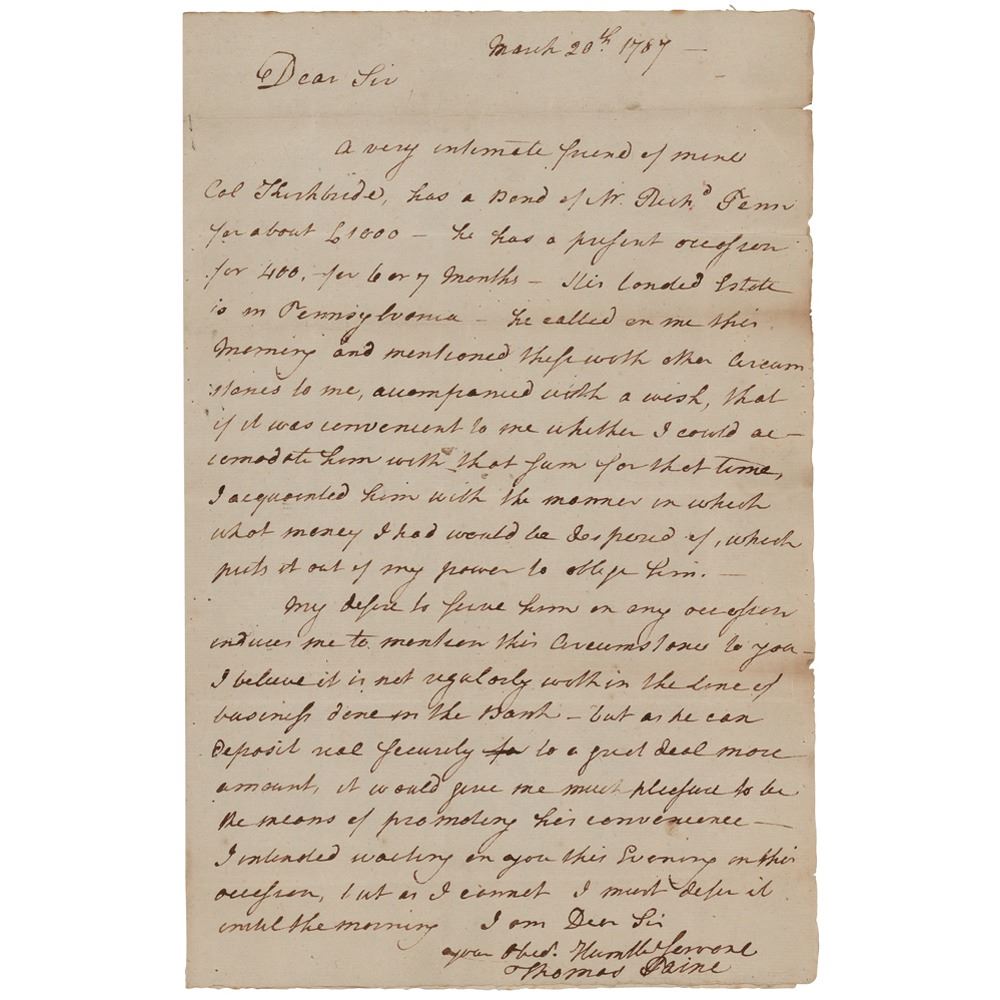 March 20th 1787 —
Dear Sir
A very intimate friend of mine
Col Kirkbride, has a Bond of Mr. Richd Penn
for about £1000 — he has a present occasion
for 400, for 6 or 7 Months — His landed Estate
is in Pennsylvania — he called on me this
Morning and mentioned these with other Circum
stances to me, accompanied with a wish, that
if it was convenient to me whether I could ac—
comodate him with that sum for that time,
I acquainted him with the manner in which
what money I had would be desposed of, which
puts it out of my power to oblige him. —
My desire to serve him on any occasion
induces me to mention this Circumstance to you—
I believe it is not regularly within the line of
business done in the Bank — but as he can
deposit real security to to a great deal more
amount, it would give me much pleasure to be
the means of promoting his convenience —
I intended waiting on you this Evening on this
occasion, but as I cannot I must defer it
until the morning I am Dear Sir
your Obedt. Humble Servant
Thomas Paine